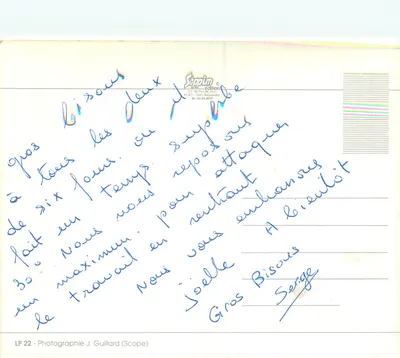 gros bisous
à tous les deux
de six jours. où il
fait un temps superbe
30°. Nous nous reposons
un maximum pour attaquer
le travail en rentrant
Nous vous embrassons
Joëlle A bientôt
Gros Bisous
Serge
LP 22 - Photographie J. Guillard (Scope)